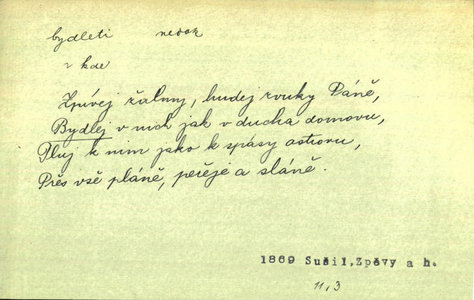 bydleti nedok
v kde
Zpívej žalmy, hudej zvuky Páně,
Bydlej v nich jak v ducha domovu,
Pluj k nim jako k spásy ostrovu,
Přes vše pláně, peřeje a sláně.
1869 Sušil, Zpěvy a h.
11,3